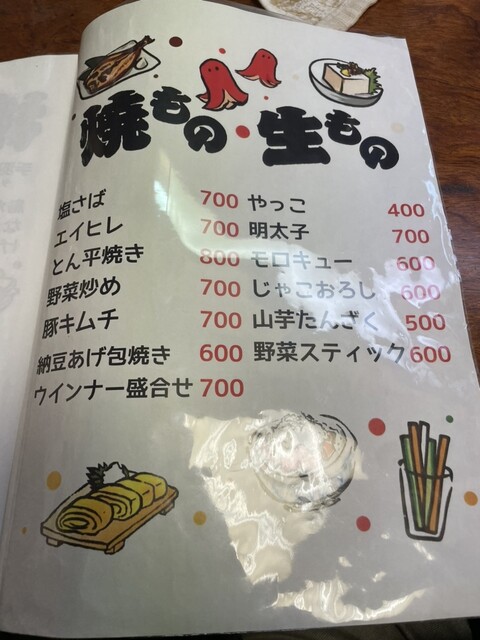 焼もの・生もの
塩さば 700
エイヒレ 700
とん平焼き 800
野菜炒め 700
豚キムチ 700
納豆あげ包焼き 600
ウインナー盛合せ 700
やっこ 400
明太子 700
モロキュー 600
じゃこおろし 600
山芋たんざく 500
野菜スティック 600